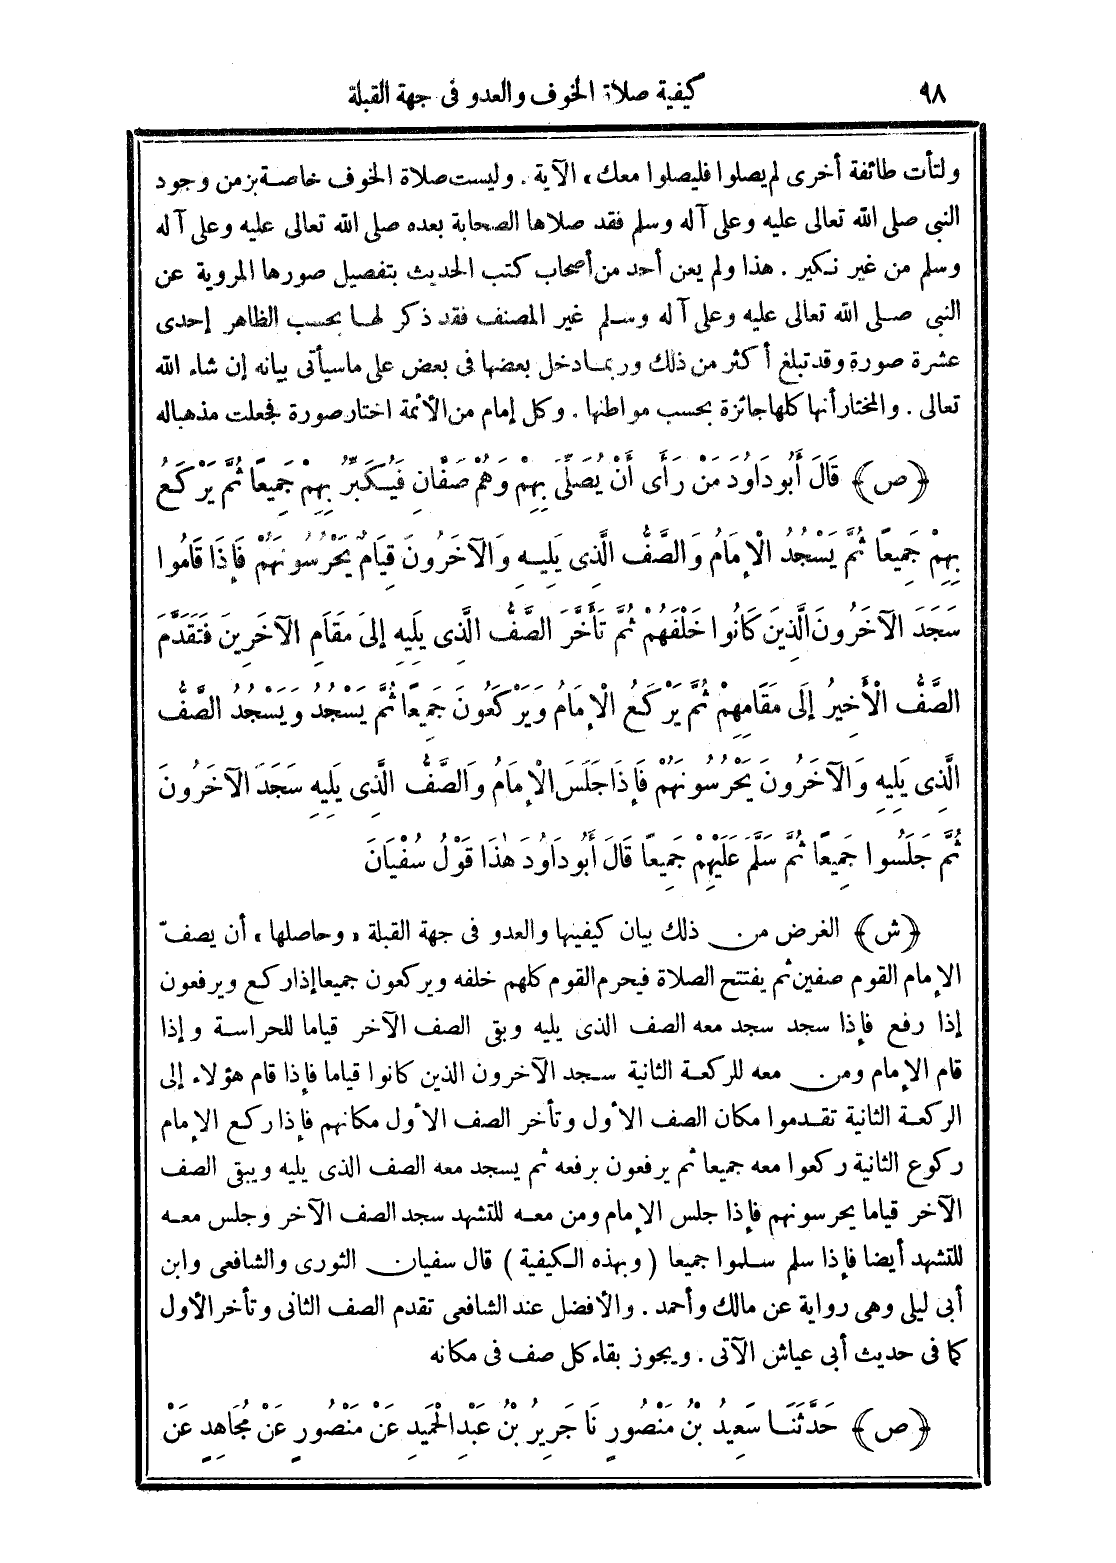 ٩٨ كيفية صلاة الخوف والعدو فى جهة القبلة
ولتأت طائفة أخرى لم يصلوا فليصلوا معك، الآية. وليست صلاة الخوف خاصة بزمن وجود
النبى صلى الله تعالى عليه وعلى آله وسلم فقد صلاها الصحابة بعده صلى الله تعالى عليه وعلى آله
وسلم من غير نكير. هذا ولم يعن أحد من أصحاب كتب الحديث بتفصيل صورها المروية عن
النبى صلى الله تعالى عليه وعلى آله وسلم غير المصنف فقد ذكر لها بحسب الظاهر إحدى
عشرة صورة وقد تبلغ أكثر من ذلك وربما دخل بعضها فى بعض على ماسيأتى بيانه إن شاء الله
تعالى. والمختار أنها كلها جائزة بحسب مواطنها. وكل إمام من الأئمة اختار صورة فجعلت مذهباله
﴿ص﴾ قَالَ أَبُودَاوُدَ مَنْ رَأَى أَنْ يُصَلِّىَ بِهِمْ وَهُمْ صَفَّانِ فَيُكَبِّرُ بِهِمْ جَمِيعًا ثُمَّ يَرْكَعُ
بِهِمْ جَمِيعًا ثُمَّ يَسْجُدُ الْإِمَامُ وَالصَّفُّ الَّذِى يَلِيهِ وَالآخَرُونَ قِيَامٌ يَحْرُسُونَهُمْ فَإِذَا قَامُوا
سَجَدَ الآخَرُونَ الَّذِينَ كَانُوا خَلْفَهُمْ ثُمَّ تَأَخَّرَ الصَّفُّ الَّذِى يَلِيهِ إِلىَ مَقَامِ الآخَرِينَ فَتَقَدَّمَ
الصَّفُّ الْأَخِيرُ إِلَى مَقَامِهِمْ ثُمَّ يَرْكَعُ الْإِمَامُ وَيَرْكَعُونَ جَمِيعًا ثُمَّ يَسْجُدُ وَيَسْجُدُ الصَّفُّ
الَّذِى يَلِيهِ وَالآخَرُونَ يَحْرُسُونَهُمْ فَإِذَا جَلَسَ الْإِمَامُ وَالصَّفُّ الَّذِى يَلِيهِ سَجَدَ الآخَرُونَ
ثُمَّ جَلَسُوا جَمِيعًا ثُمَّ سَلَّمَ عَلَيْهِمْ جَمِيعًا قَالَ أَبُودَاوُدَ هٰذَا قَوْلُ سُفْيَانَ
﴿ش﴾ الغرض من ذلك بيان كيفيتها والعدو فى جهة القبلة «وحاصلها» أن يصفّ
الإمام القوم صفين ثم يفتتح الصلاة فيحرم القوم كلهم خلفه ويركعون جميعا إذا ركع ويرفعون
إذا رفع فإذا سجد سجد معه الصف الذى يليه وبقى الصف الآخر قياما للحراسة وإذا
قام الإمام ومن معه للركعة الثانية سجد الآخرون الذين كانوا قياما فإذا قام هؤلاء إلى
الركعة الثانية تقدموا مكان الصف الأول وتأخر الصف الأول مكانهم فإذا ركع الإمام
ركوع الثانية ركعوا معه جميعا ثم يرفعون برفعه ثم يسجد معه الصف الذى يليه ويبقى الصف
الآخر قياما يحرسونهم فإذا جلس الإمام ومن معه للتشهد سجد الصف الآخر وجلس معه
للتشهد أيضا فإذا سلم سلموا جميعا (وبهذه الكيفية) قال سفيان الثورى والشافعى وابن
أبى ليلى وهى رواية عن مالك وأحمد. والأفضل عند الشافعى تقدم الصف الثانى وتأخر الأول
كما فى حديث أبى عياش الآتى. ويجوز بقاء كل صف فى مكانه
﴿ص﴾ حَدَّثَنَا سَعِيدُ بْنُ مَنْصُورٍ نَا جَرِيرُ بْنُ عَبْدِ الْحَمِيدِ عَنْ مَنْصُورٍ عَنْ مُجَاهِدٍ عَنْ